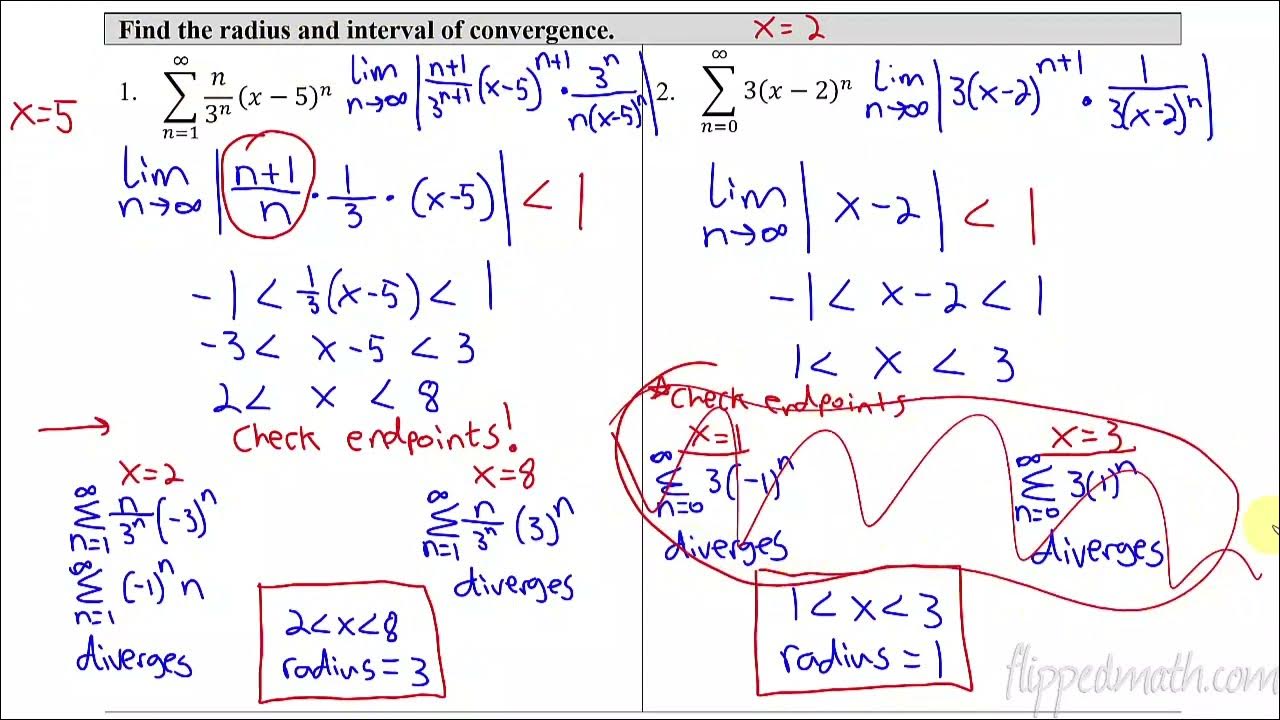 Find the radius and interval of convergence.
x = 2
x=5
1. ∞ Σ n=1 n/3ⁿ (x − 5)ⁿ
lim n→∞ | (n+1)/3ⁿ⁺¹ (x-5)ⁿ⁺¹ • 3ⁿ/n(x-5)ⁿ |
lim n→∞ | (n+1)/n • 1/3 • (x-5) | < 1
-1 < 1/3 (x-5) < 1
-3 < x-5 < 3
2 < x < 8
Check endpoints!
x=2
∞ Σ n=1 n/3ⁿ (-3)ⁿ
∞ Σ n=1 (-1)ⁿ n
diverges
x=8
∞ Σ n=1 n/3ⁿ (3)ⁿ
diverges
2<x<8
radius = 3
2. ∞ Σ n=0 3(x − 2)ⁿ
lim n→∞ | 3(x-2)ⁿ⁺¹ • 1/3(x-2)ⁿ |
lim n→∞ | x-2 | < 1
-1 < x-2 < 1
1 < x < 3
Check endpoints
x=1
∞ Σ n=0 3(-1)ⁿ
diverges
x=3
∞ Σ n=0 3(1)ⁿ
diverges
1 < x < 3
radius = 1
flippedmath.com